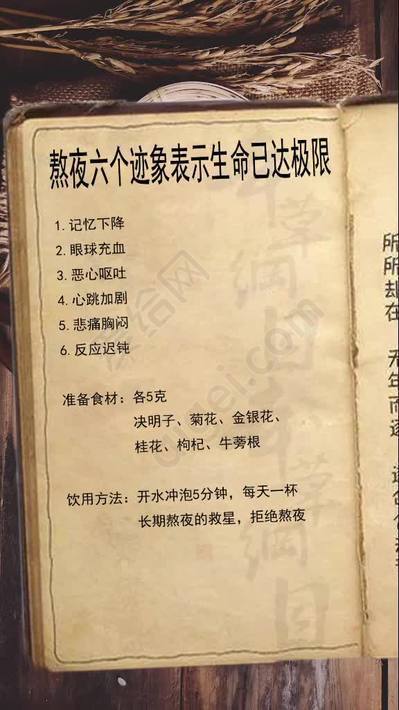 熬夜六个迹象表示生命已达极限
1.记忆下降
2.眼球充血
3.恶心呕吐
4.心跳加剧
5.悲痛胸闷
6.反应迟钝
准备食材：各5克
决明子、菊花、金银花、
桂花、枸杞、牛蒡根
饮用方法：开水冲泡5分钟，每天一杯
长期熬夜的救星，拒绝熬夜
本草纲目本草纲目